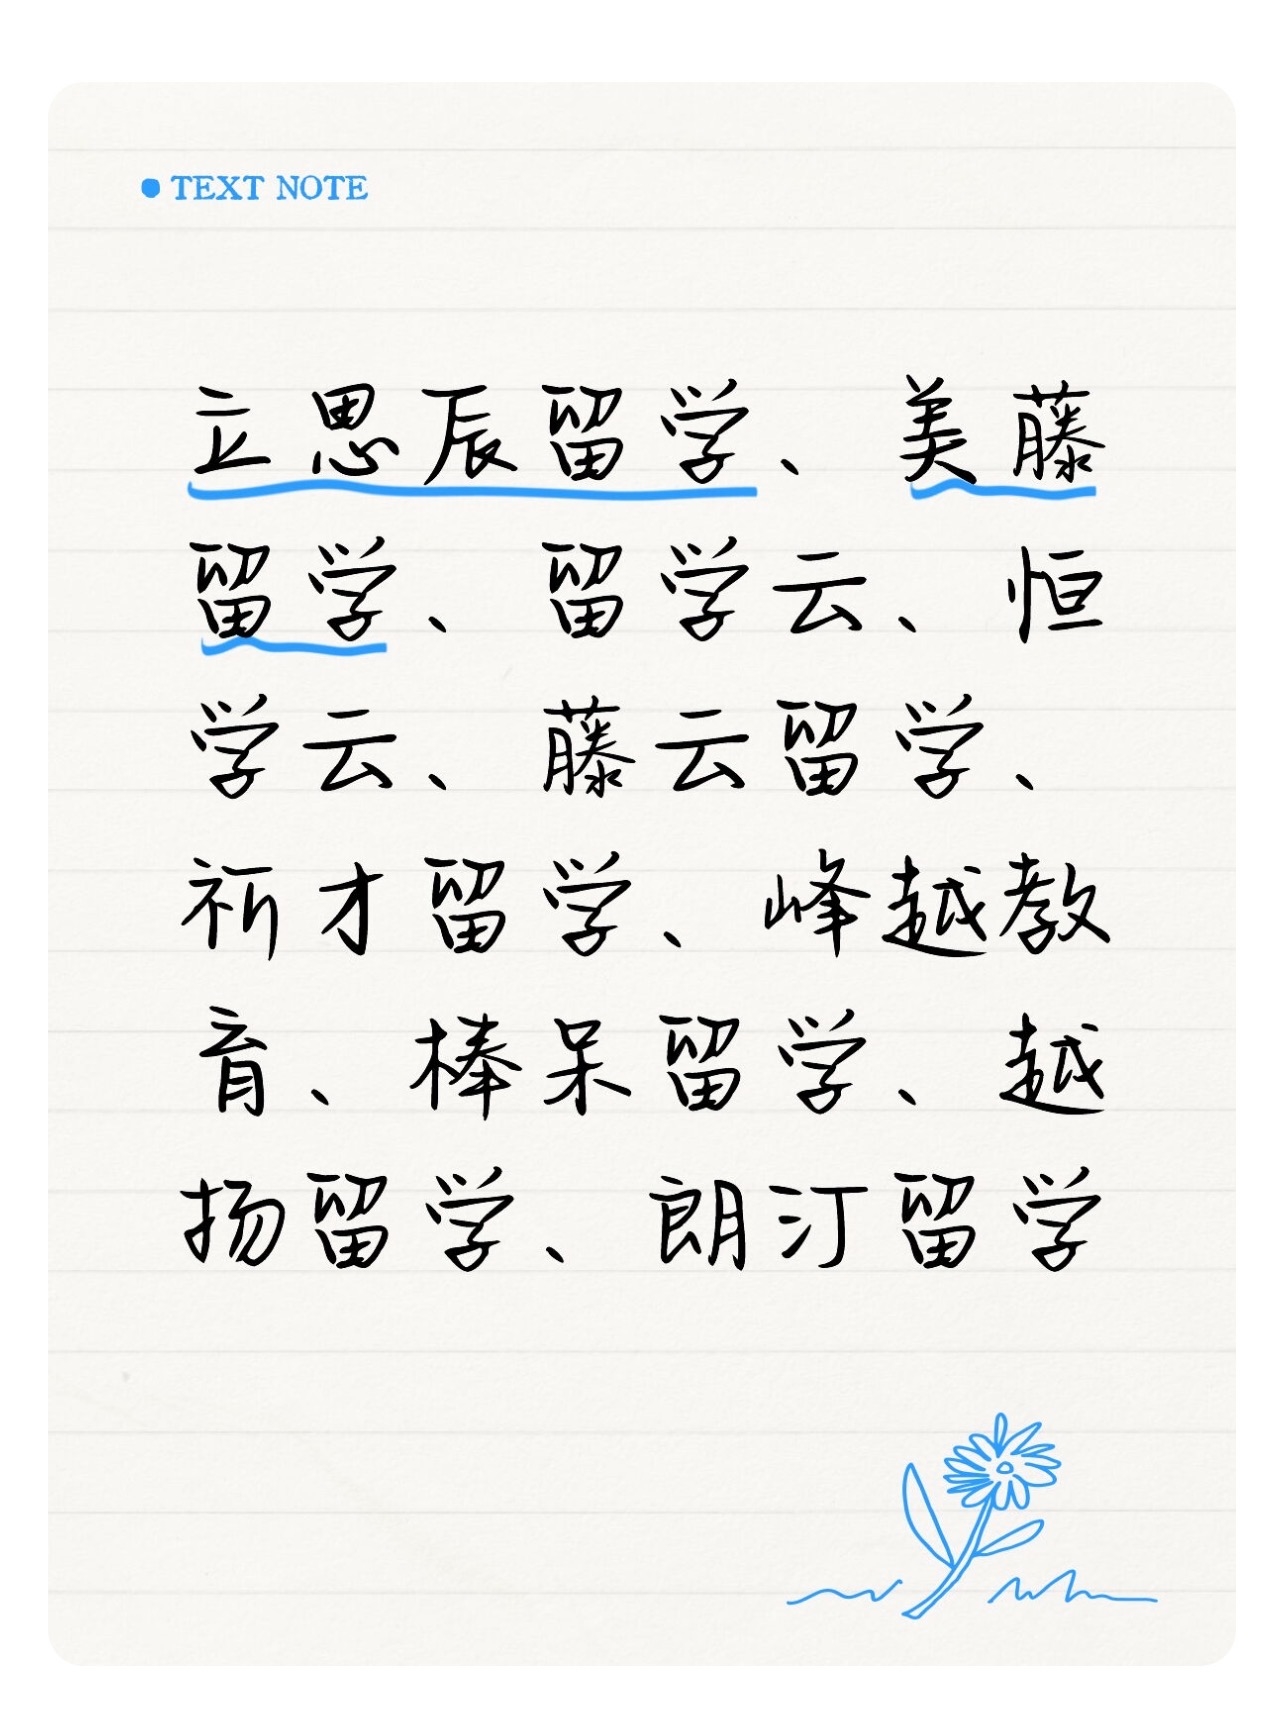 TEXT NOTE
立思辰留学、美藤
留学、留学云、恒
学云、藤云留学、
祈才留学、峰越教
育、棒呆留学、越
扬留学、朗汀留学